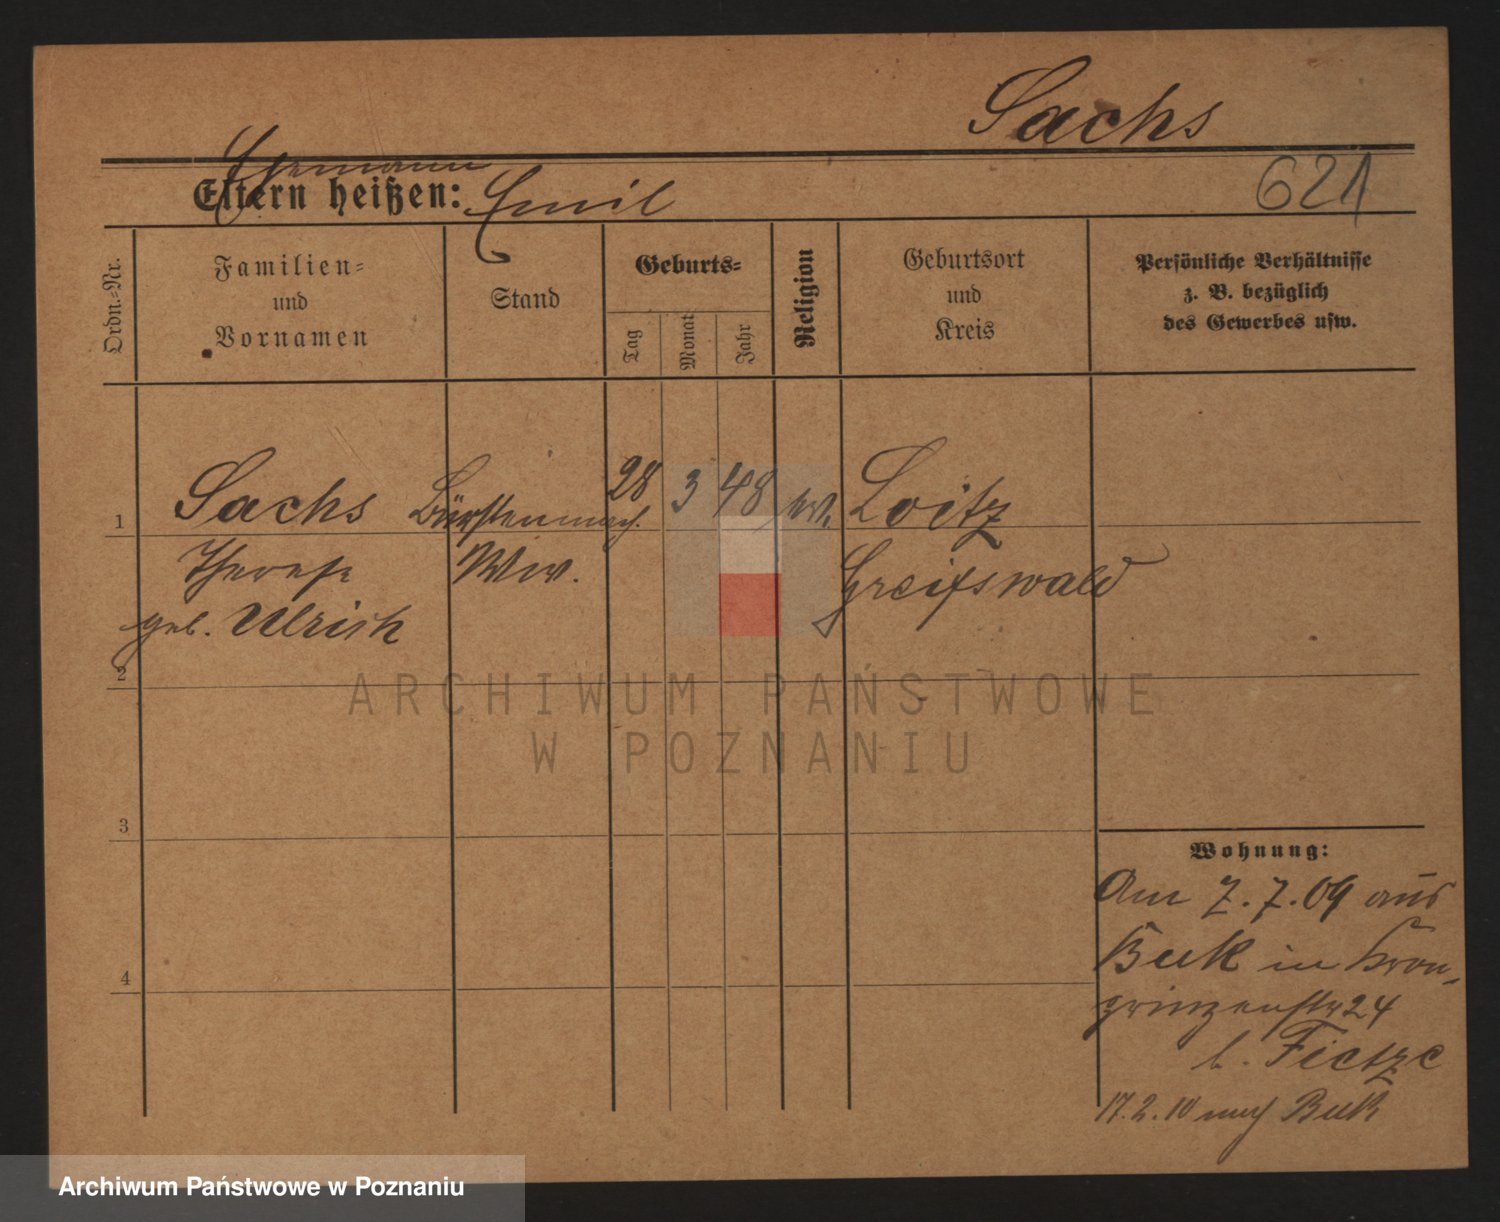 Sachs
621
Ehemann
Eltern heißen: Emil
Ordn.-Nr.
Familien-
und
Vornamen
Stand
Geburts-
Tag
Monat
Jahr
Religion
Geburtsort
und
Kreis
Persönliche Verhältnisse
z. B. bezüglich
des Gewerbes usw.
1 Sachs Bürstenmach. 28 3 48 ev. Loitz
Therese Wiw. Greifswald
geb. Ulrich
2
3
4
Wohnung:
Am 7.7.09 aus
Buk in Kron-
prinzenstr 24
b. Fietze
17.2.10 nach Buk
ARCHIWUM PAŃSTWOWE
W POZNANIU
Archiwum Państwowe w Poznaniu